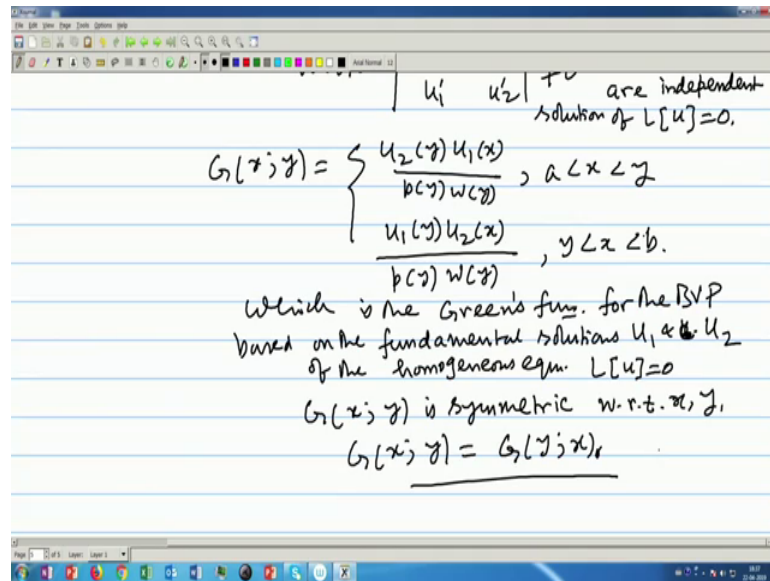 Journal
File Edit View Page Tools Options Help
Arial Normal 12
| u₁' u₂' | ≠0 are independent
solution of L[u]=0.
G(x;y) = { u₂(y) u₁(x) / p(y) w(y) , a<x<y
u₁(y) u₂(x) / p(y) w(y) , y<x<b.
Which is the Green's fun. for the BVP
based on the fundamental solutions u₁ & u₂
of the homogeneous eqn. L[u]=0
G(x;y) is symmetric w.r.t. x, y.
G(x;y) = G(y;x).
Page 5 of 5 Layer: Layer 1
18:37